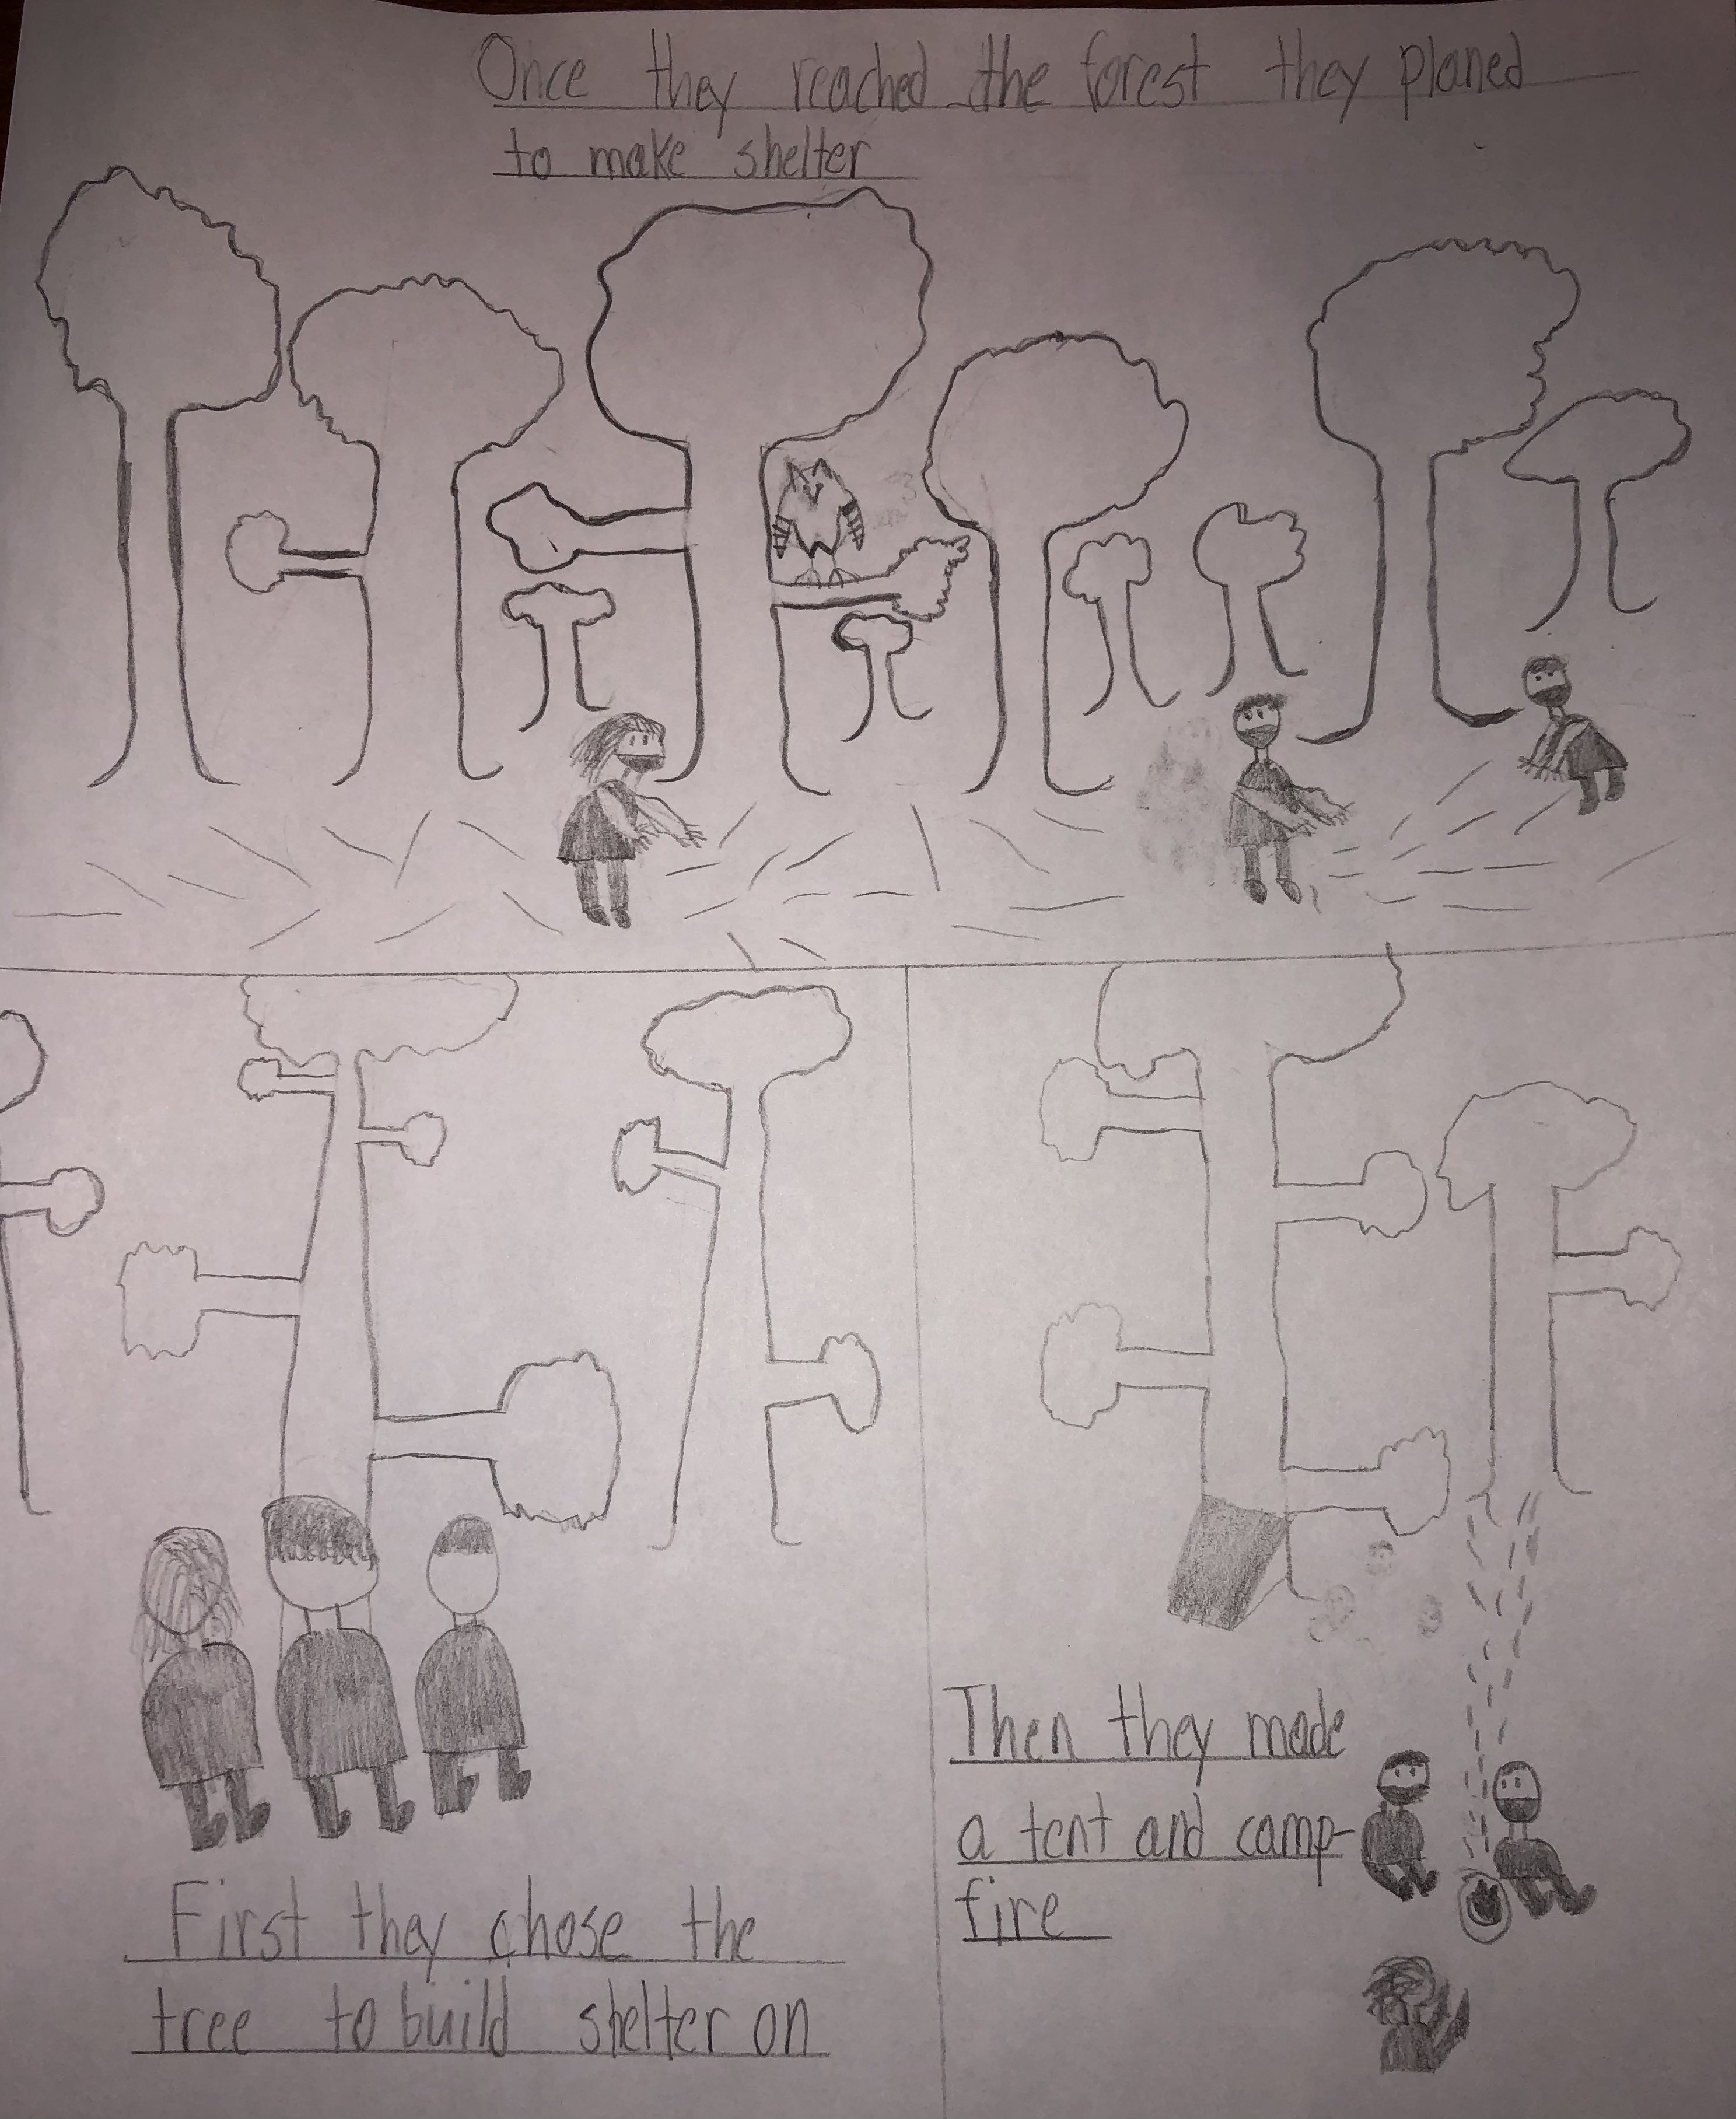 Once they reached the forest they planed
to make shelter
First they chose the
tree to build shelter on
Then they made
a tent and camp-
fire